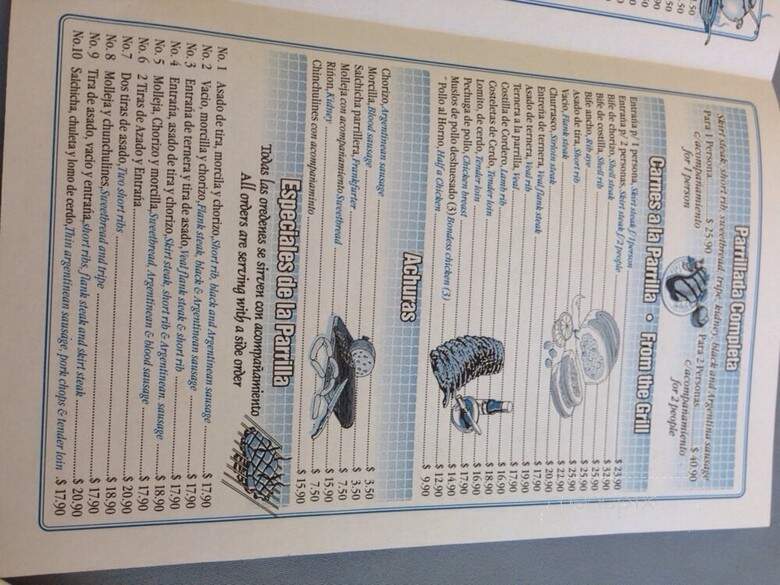 Parrillada Completa
Skirt steak, short rib, sweetbread, tripe, kidney, black and Argentina sausage
Para 1 Persona $ 25.90 Para 2 Personas $ 40.90
c/ acompañamiento c/ acompañamiento
for 1 person for 2 people
Carnes a la Parrilla • From the Grill
Entraña p/ 1 persona, Skirt steak f/1person $ 23.90
Entraña p/ 2 personas, Skirt steak f/2 people $ 32.90
Bife de chorizo, Shell steak $ 25.90
Bife de costilla, Shell rib $ 25.90
Bife ancho, Rib aye $ 25.90
Asado de tira, Short rib $ 22.90
Vacio, Flank steak $ 20.90
Churrasco, Sirloin steak $ 17.90
Entreña de ternera, Veal flank steak $ 19.90
Asado de ternera, Veal rib $ 17.90
Ternera a la parrilla, Veal $ 16.90
Costilla de Cordero, Lamb rib $ 18.90
Costeletas de Cerdo, Tender loin $ 16.90
Lomito, de cerdo, Tender loin $ 17.90
Pechuga de pollo, Chicken breast $ 14.90
Muslos de pollo deshuesado (3) Boneless chicken (3) $ 12.90
Pollo al Horno, Half a Chicken $ 9.90
Achuras
Chorizo, Argentinean sausage $ 3.50
Morcilla, Blood sausage $ 3.50
Salchicha parrillera, Frankfurter $ 7.50
Molleja con acompañamiento Sweetbread $ 15.90
Riñon, Kidney $ 7.50
Chinchulines con acompañaminto $ 15.90
Especiales de la Parrilla
Todas las oredenes se sirven con acompañamiento
All orders are serving with a side order
No. 1 Asado de tira, morcila y chorizo, Short rib, black and Argentinean sausage $ 17.90
No. 2 Vacio, morcilla y chorizo, Flank steak, black & Argentinean sausage $ 17.90
No. 3 Entraña de ternera y tira de asado, Veal flank steak & short rib $ 17.90
No. 4 Entraña, asado de tira y chorizo, Skirt steak, short rib & Argentinean. sausage $ 18.90
No. 5 Molleja, Chorizo y morcilla, Sweetbread, Argentinean & blood sausage $ 17.90
No. 6 2 Tiras de Azado y Entraña $ 20.90
No. 7 Dos tiras de asado, Two short ribs $ 18.90
No. 8 Molleja y chunchulines, Sweetbread and tripe $ 17.90
No. 9 Tira de asado, vacio y entraña, short ribs, flank steak and skirt steak $ 20.90
No.10 Salchicha, chuleta y lomo de cerdo, Thin argentinean sausage, pork chops & tender loin .$ 17.90